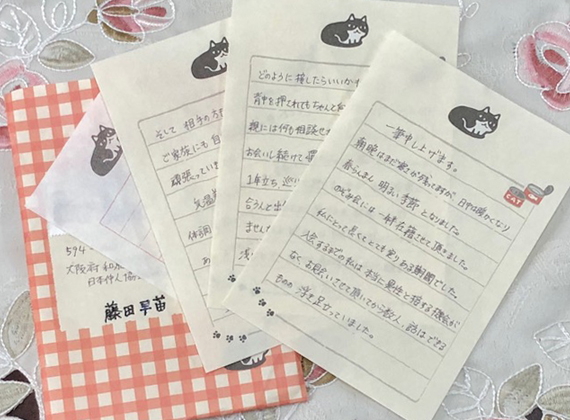 594-
大阪府和
日本仲人協
藤田早苗
そして 相手の方
ご家族にも
頑張っていま
気温
体調
あ
どのように接したらいいかわ
背中を押されてもちゃんと
親には何も相談でき
お会いし続けて
1年立ち
ません
浅
一筆申し上げます。
朝晩はまだ寒さが残りますが、日中は暖かくなり
春らんまん 明るい季節となりました。
CAT
のぞみ会には一 在籍させて頂きました。
私にとって長くとても実りある期間でした。
入会するまでの私は本当に異性と接する機会が
なく、お見合いさせて頂いて 数人、話はできる
ものの 浮き足立っていました。